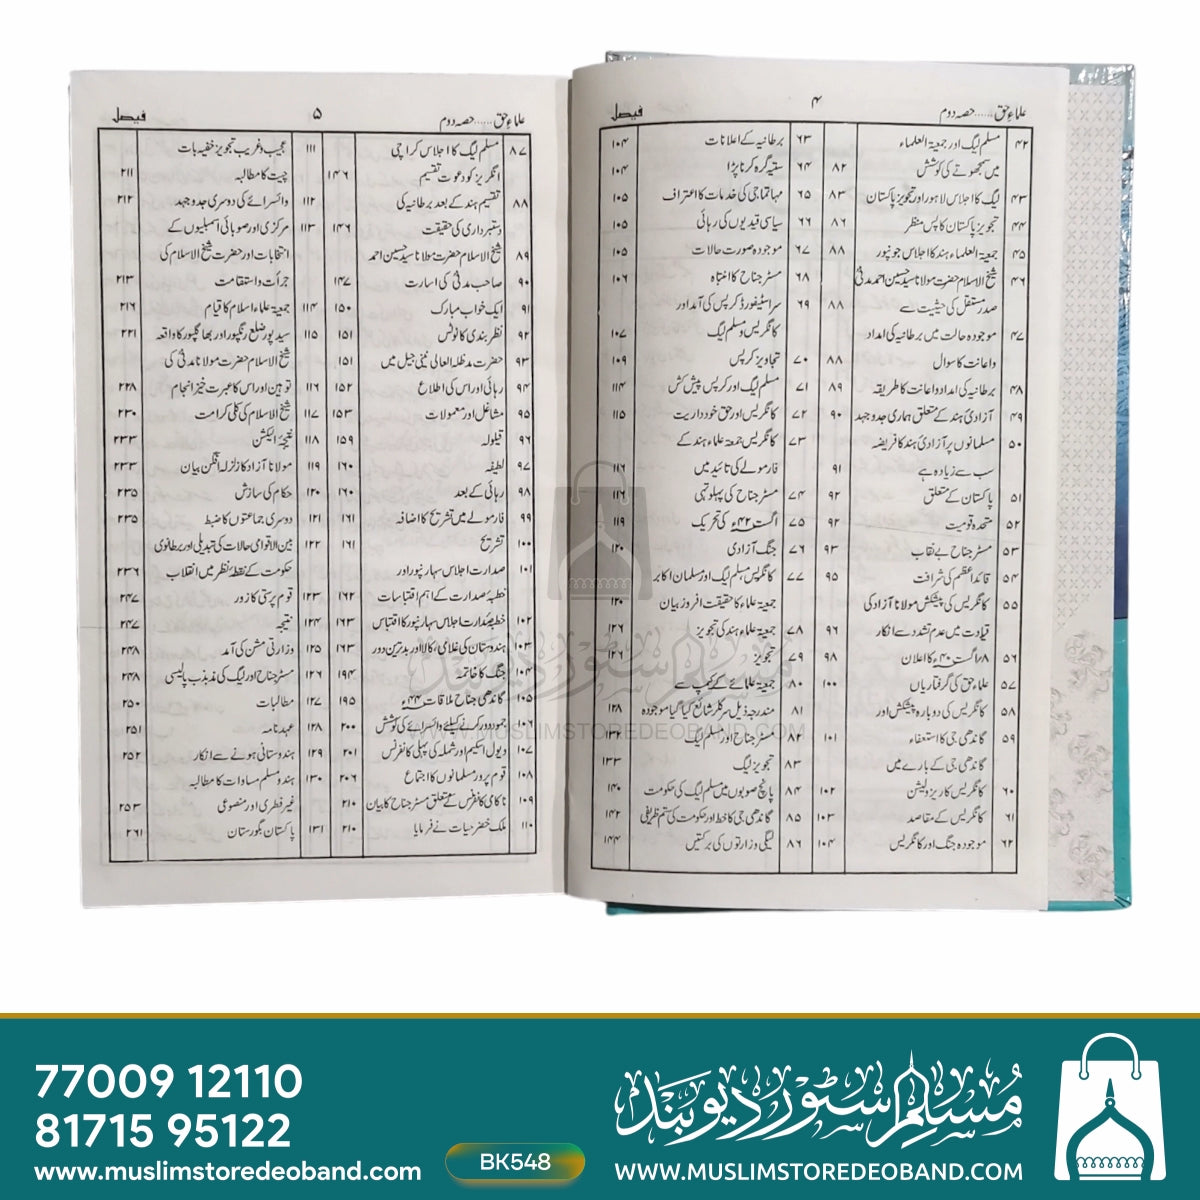 علماءِ حق......حصہ دوم ۴ فیصل
۴۲ مسلم لیگ اور جمعیۃ العلماء
میں سمجھوتے کی کوشش ۸۲
۴۳ لیگ کا اجلاس لاہور اور تجویز پاکستان ۸۳
۴۴ تجویز پاکستان کا پس منظر ۸۶
۴۵ جمعیۃ العلماء ہند کا اجلاس جونپور ۸۸
۴۶ شیخ الاسلام حضرت مولانا سید حسین احمد مدنیؒ
صدر مستقل کی حیثیت سے ۸۸
۴۷ موجودہ حالت میں برطانیہ کی امداد
و اعانت کا سوال ۸۸
۴۸ برطانیہ کی امداد و اعانت کا طریقہ ۸۹
۴۹ آزادیٔ ہند کے متعلق ہماری جدوجہد ۹۰
۵۰ مسلمانوں پر آزادیٔ ہند کا فریضہ
سب سے زیادہ ہے ۹۱
۵۱ پاکستان کے متعلق ۹۲
۵۲ متحدہ قومیت ۹۲
۵۳ مسٹر جناح بے نقاب ۹۳
۵۴ قائد اعظم کی شرافت ۹۵
۵۵ کانگریس کی پیشکش مولانا آزاد کی
قیادت میں عدم تشدد سے انکار ۹۶
۵۶ ۸/اگست ۴۰ء کا اعلان ۹۸
۵۷ علماءِ حق کی گرفتاریاں ۱۰۰
۵۸ کانگریس کی دوبارہ پیشکش اور
۵۹ گاندھی جی کا استعفاء ۱۰۱
گاندھی جی کے بارے میں
۶۰ کانگریس کا ریزولیشن ۱۰۲
۶۱ کانگریس کے مقاصد ۱۰۳
۶۲ موجودہ جنگ اور کانگریس ۱۰۴
۶۳ برطانیہ کے اعلانات ۱۰۴
۶۴ ستیہ گرہ کرنا پڑا ۱۰۴
۶۵ مہاتما جی کی خدمات کا اعتراف ۱۰۵
۶۶ سیاسی قیدیوں کی رہائی ۱۰۵
۶۷ موجودہ صورت حالات ۱۰۵
۶۸ مسٹر جناح کا انتباہ ۱۰۶
۶۹ سر اسٹیفورڈ کرپس کی آمد اور
کانگریس و مسلم لیگ ۱۰۷
۷۰ تجاویز کرپس ۱۰۹
۷۱ مسلم لیگ اور کرپس پیش کش ۱۱۴
۷۲ کانگریس اور حق خود داریت ۱۱۵
۷۳ کانگریس جمعیۃ علماء ہند کے
فارمولے کی تائید میں ۱۱۶
۷۴ مسٹر جناح کی پہلوتہی ۱۱۶
۷۵ اگست ۴۲ء کی تحریک ۱۱۹
۷۶ جنگ آزادی ۱۲۰
۷۷ کانگریس مسلم لیگ اور مسلمان اکابر
جمعیۃ علماء کا حقیقت افروز بیان ۱۲۰
۷۸ جمعیۃ علماء ہند کی تجویز ۱۲۶
۷۹ تجویز ۱۲۶
۸۰ جمعیۃ علمائے کے کیمپ سے
۸۱ مندرجہ ذیل سرکلر شائع کیا گیا موجودہ ۱۲۸
۸۲ مسٹر جناح اور مسلم لیگ ۱۳۲
۸۳ تجویز لیگ ۱۳۳
۸۴ پانچ صوبوں میں مسلم لیگ کی حکومت ۱۴۰
۸۵ گاندھی جی کا خط اور حکومت کی ستم ظریفی ۱۴۲
۸۶ لیگی وزارتوں کی برکتیں ۱۴۴
علماءِ حق......حصہ دوم ۵ فیصل
۸۷ مسلم لیگ کا اجلاس کراچی
انگریز کو دعوت تقسیم ۱۴۶
۸۸ تقسیم ہند کے بعد برطانیہ کی
دستبرداری کی حقیقت ۱۴۶
۸۹ شیخ الاسلام حضرت مولانا سید حسین احمد
۹۰ صاحب مدنیؒ کی اسارت ۱۴۷
۹۱ ایک خواب مبارک ۱۵۰
۹۲ نظر بندی کا نوٹس ۱۵۱
۹۳ حضرت مدظلہ العالی نینی جیل میں ۱۵۱
۹۴ رہائی اور اس کی اطلاع ۱۵۲
۹۵ مشاغل اور معمولات ۱۵۳
۹۶ قیلولہ ۱۵۹
۹۷ لطیفہ ۱۶۰
۹۸ رہائی کے بعد ۱۶۰
۹۹ فارمولے میں تشریح کا اضافہ ۱۶۱
۱۰۰ تشریح ۱۶۱
۱۰۱ صدارت اجلاس سہارنپور اور
خطبۂ صدارت کے اہم اقتباسات ۱۶۲
۱۰۲ خطبۂ صدارت اجلاس سہارنپور کا اقتباس ۱۶۳
۱۰۳ ہندوستان کی غلامی، کالا اور بدترین دور ۱۶۳
۱۰۴ جنگ کا خاتمہ ۱۹۴
۱۰۵ گاندھی جناح ملاقات ۴۴ء ۱۹۵
۱۰۶ جمود دور کرنے کیلئے وائسرائے کی کوشش ۲۰۰
۱۰۷ ویول اسکیم اور شملہ کی پہلی کانفرنس ۲۰۱
۱۰۸ قوم پرور مسلمانوں کا اجتماع ۲۰۶
۱۰۹ ناکامی کانفرنس کے متعلق مسٹر جناح کا بیان ۲۱۰
۱۱۰ ملک خضر حیات نے فرمایا ۲۱۰
۱۱۱ عجیب و غریب تجویز خفیہ بات
چیت کا مطالبہ ۲۱۱
۱۱۲ وائسرائے کی دوسری جدوجہد ۲۱۲
۱۱۳ مرکزی اور صوبائی اسمبلیوں کے
انتخابات اور حضرت شیخ الاسلام کی
جرأت و استقامت ۲۱۳
۱۱۴ جمعیۃ علماء اسلام کا قیام ۲۱۶
۱۱۵ سید پور ضلع رنگپور اور بھاگلپور کا واقعہ ۲۲۱
شیخ الاسلام حضرت مولانا مدنیؒ کی
۱۱۶ توہین اور اس کا عبرت خیز انجام ۲۲۸
۱۱۷ شیخ الاسلام کی کھلی کرامت ۲۳۰
۱۱۸ نتیجۂ الیکشن ۲۳۳
۱۱۹ مولانا آزاد کا زلزلہ افگن بیان ۲۳۳
۱۲۰ حکام کی سازش ۲۳۵
۱۲۱ دوسری جماعتوں کا ضبط ۲۳۵
۱۲۲ بین الاقوامی حالات کی تبدیلی اور برطانوی
حکومت کے نقطۂ نظر میں انقلاب ۲۳۶
۱۲۳ قوم پرستی کا زور ۲۴۷
۱۲۴ نتیجہ ۲۴۷
۱۲۵ وزارتی مشن کی آمد ۲۴۸
۱۲۶ مسٹر جناح اور لیگ کی مذبذب پالیسی ۲۴۸
۱۲۷ مطالبات ۲۵۰
۱۲۸ عہدنامہ ۲۵۱
۱۲۹ ہندوستانی ہونے سے انکار ۲۵۲
۱۳۰ ہندو مسلم مساوات کا مطالبہ
غیر فطری اور مصنوعی ۲۵۳
۱۳۱ پاکستان یا گورستان ۲۶۱
مسلم سٹور دیوبند
WWW.MUSLIMSTOREDEOBAND.COM
77009 12110
81715 95122
www.muslimstoredeoband.com
BK548
مسلم سٹور دیوبند
WWW.MUSLIMSTOREDEOBAND.COM